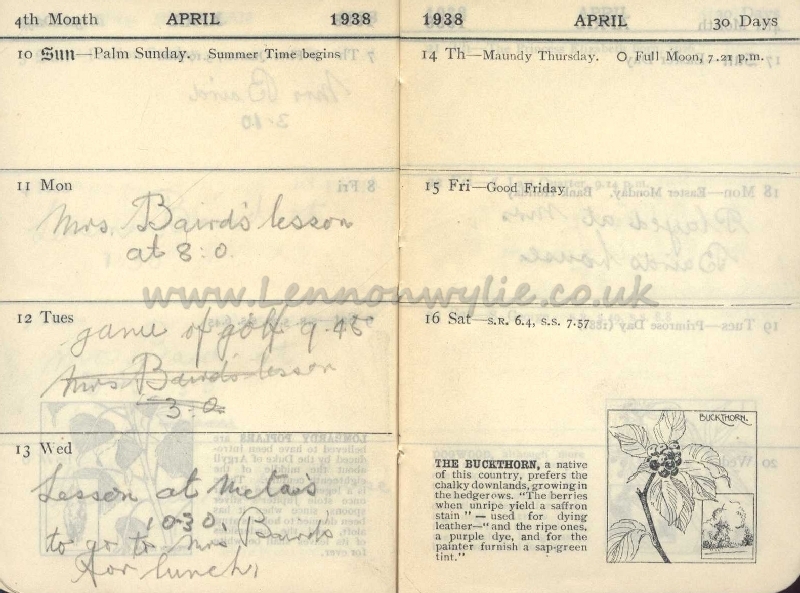 4th Month APRIL 1938
10 Sun—Palm Sunday. Summer Time begins
11 Mon
Mrs. Baird's lesson
at 8:0.
12 Tues
game of golf 9.45
Mrs Baird's lesson
3.0.
13 Wed
Lesson at Meta's
10.30.
to go to Mrs. Baird's
for lunch.
1938 APRIL 30 Days
14 Th—Maundy Thursday. O Full Moon, 7.21 p.m.
15 Fri—Good Friday
16 Sat—S.R. 6.4, S.S. 7.57
THE BUCKTHORN, a native
of this country, prefers the
chalky downlands, growing in
the hedgerows. "The berries
when unripe yield a saffron
stain" — used for dying
leather—"and the ripe ones,
a purple dye, and for the
painter furnish a sap-green
tint."
BUCKTHORN.
www.Lennonwylie.co.uk